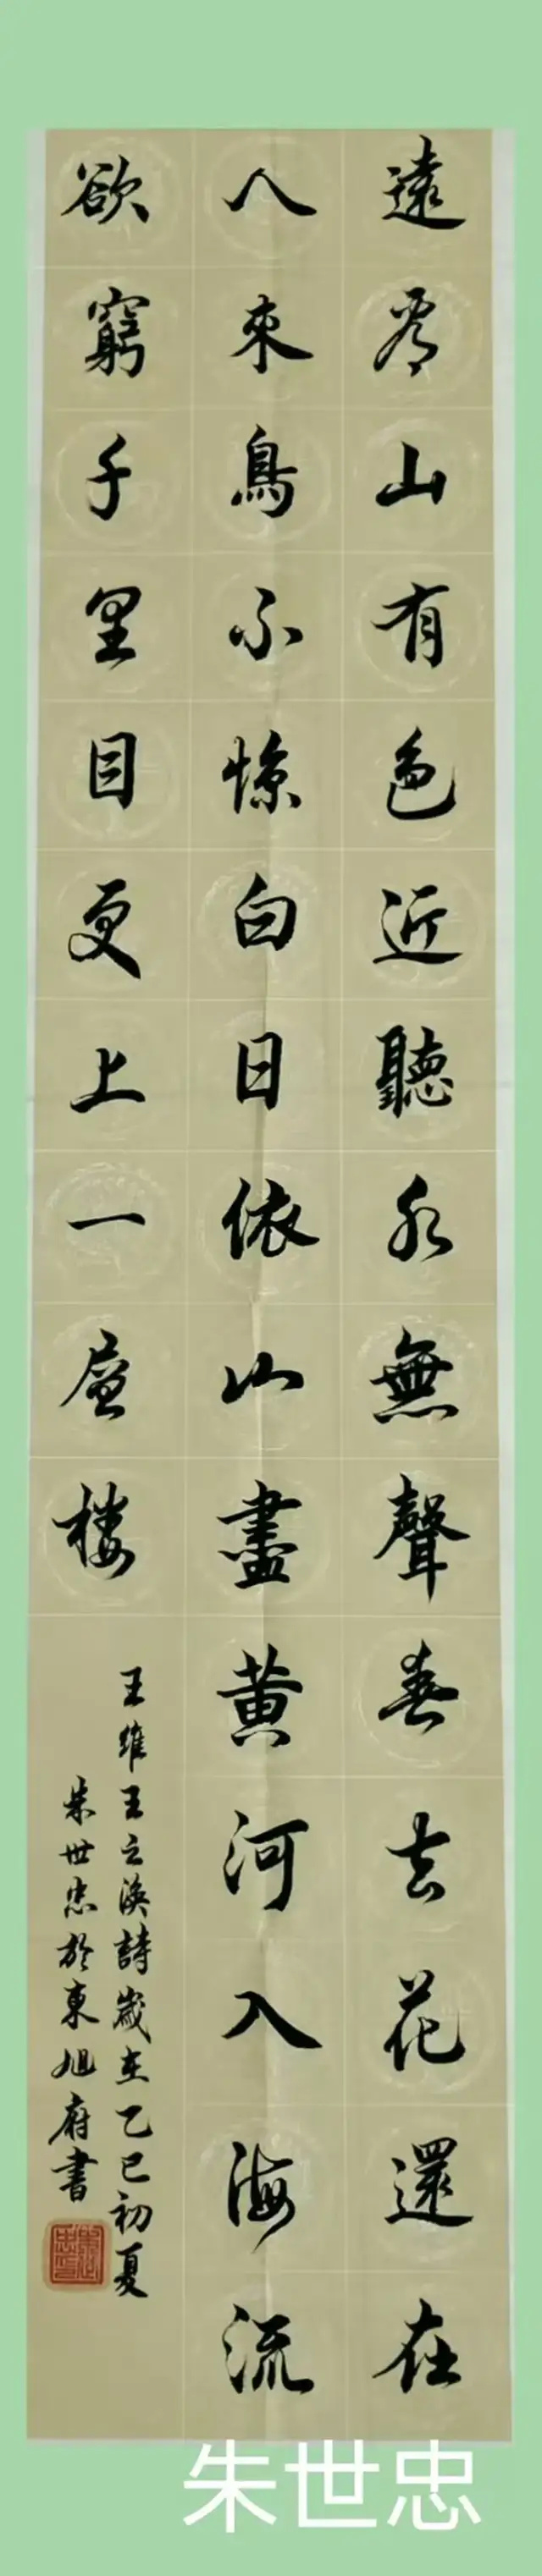 遠看山有色近聽水無聲春去花還在
人來鳥不驚白日依山盡黄河入海流
欲窮千里目更上一層楼
王維王之渙詩歲在乙巳初夏
朱世忠於東旭府書
朱世忠